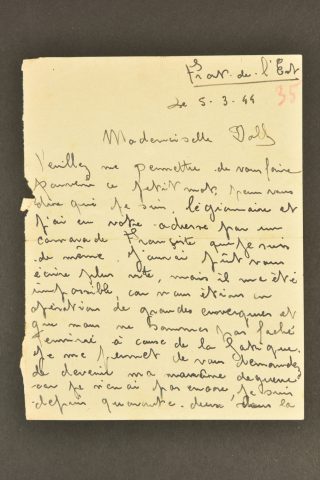 Front. de. l'Est
35
Le 5. 3. 44
Mademoiselle Dolly
Veuillez me permettre de vous faire
parvenir ce petit mot, pour vous
dire que je suis légionnaire et
j'ai eu votre adresse par un
camarade Françiste que je suis
de même. J'aurais pût vous
écrire plus vite, mais il m'a été
impossible, car nous étions en
opération de grandes envergures et
que nous ne sommes pas faché
terminé à cause de la fatigue.
Je me permet de vous demandez
de devenir ma marraine de guerre
car je n'en ai pas encore, je suis
depuis quarante. deux dans la